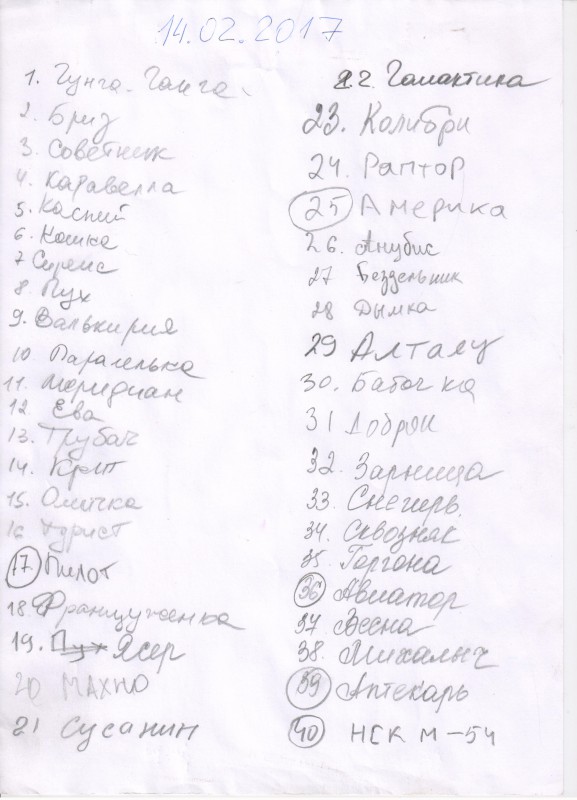 14.02.2017
1. Гунга-Ганга
2. Бриз
3. Советник
4. Каравелла
5. Каспий
6. Кошка
7
8. Пух
9. Валькирия
10
11. Меридиан
12. Ева
13. Трубач
14. Крит
15. Олички
16
17 Пилот
18. Француженка
19. Пух Ясер
20 МАХНО
21 Сусанин
22. Галактика
23. Колибри
24. Раптор
25 Америка
26. Анубис
27 Бездельник
28 Дымка
29 Алтаец
30. Бабочка
31 Добряк
32. Зарница
33. Снегирь
34. Сквозняк
35. Горгона
36 Авиатор
37 Весна
38. Михалыч
39 Аптекарь
40 НСК М-54